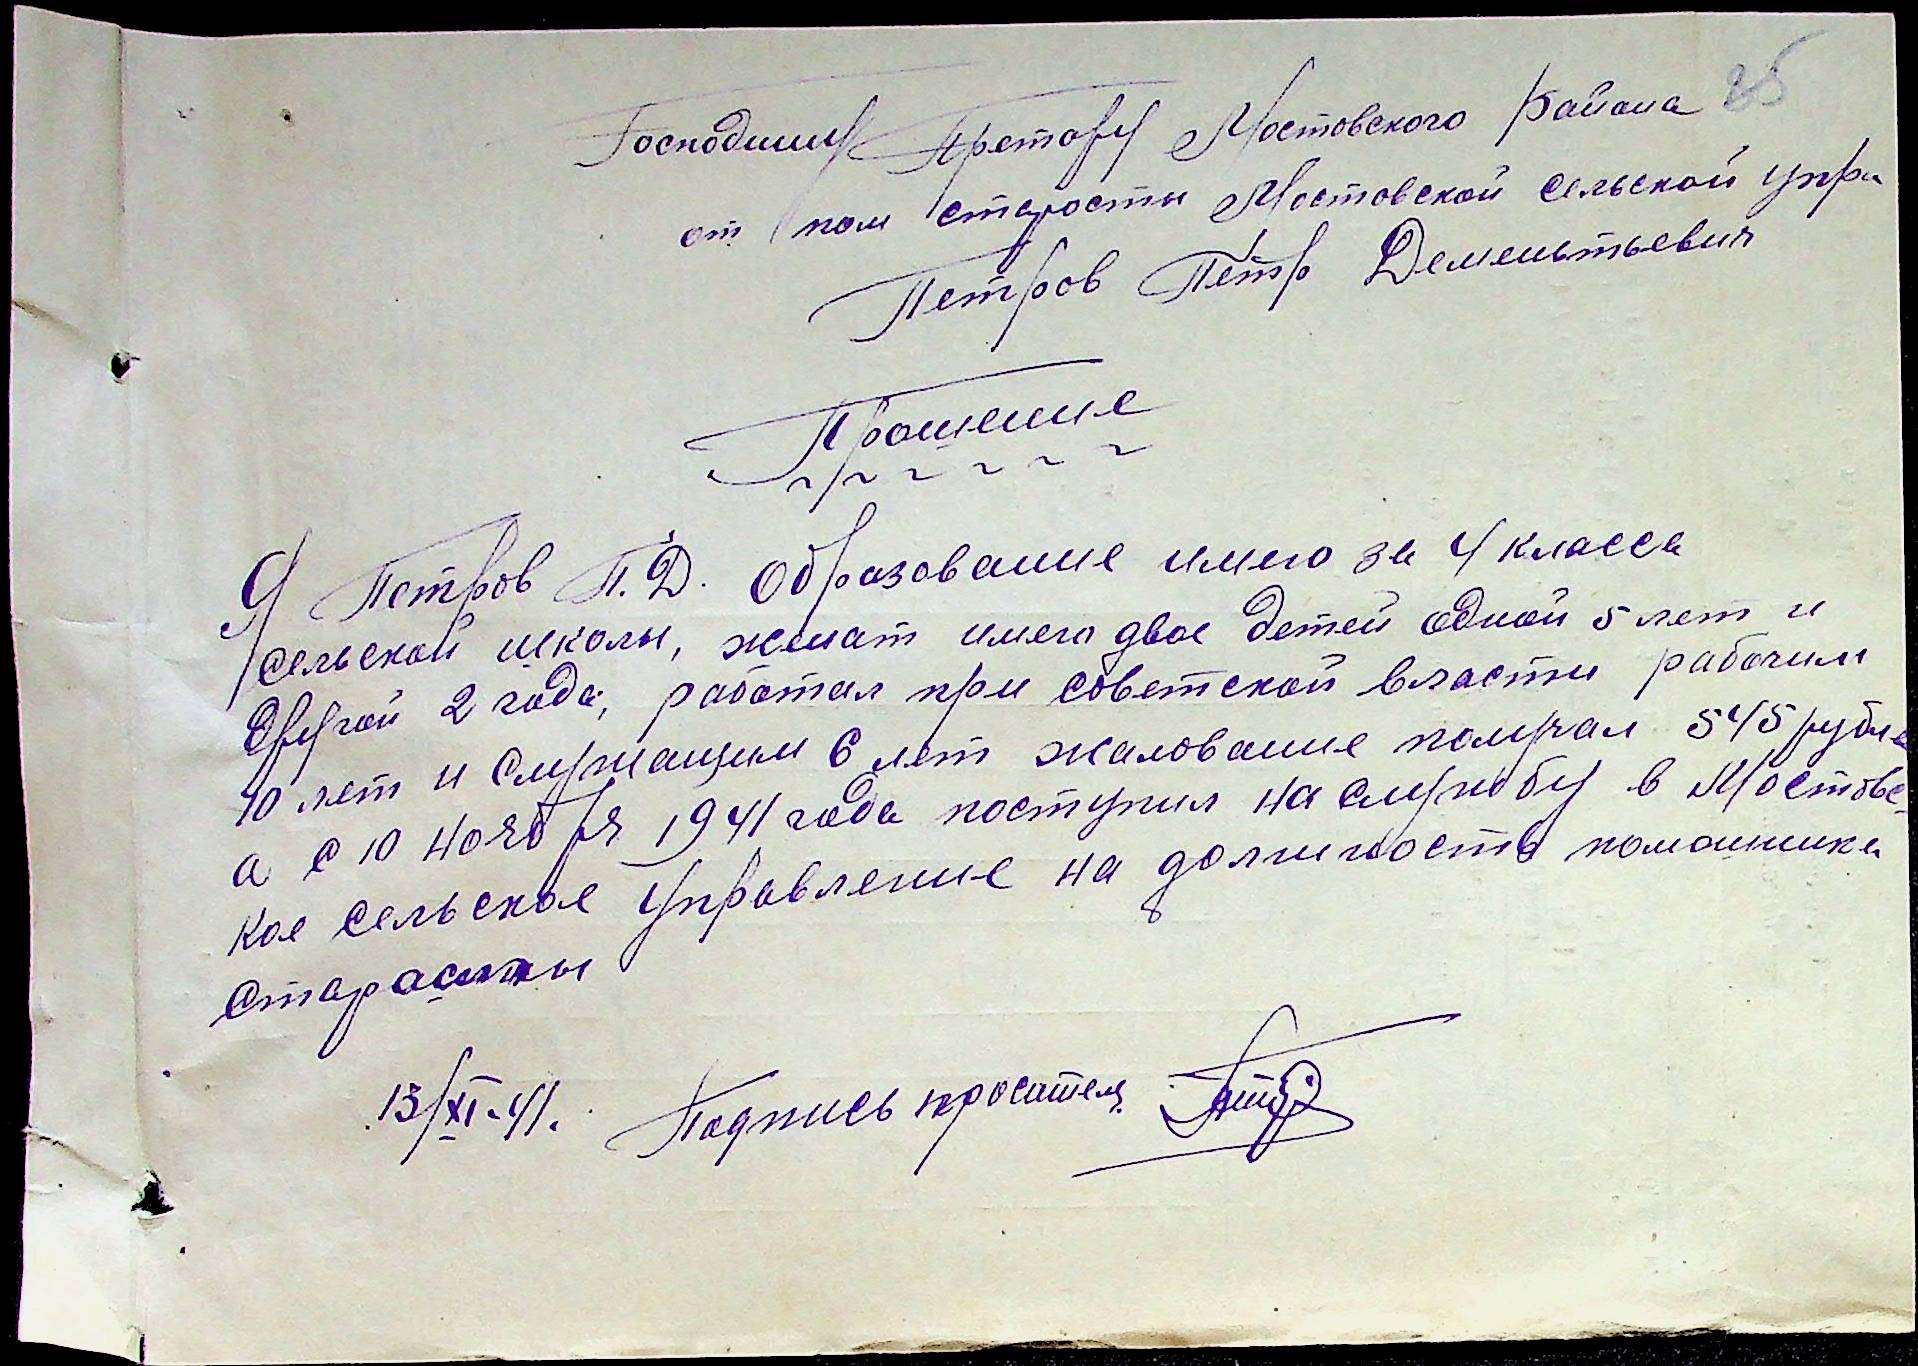 85
Господину Претору Мостовского района
от пом старосты Мостовской сельской упра
Петров Пётр Дементьевич
Прошение
Я Петров П.Д. Образование имею за 4 класса
сельской школы, женат имею двое детей одной 5 лет и
другой 2 года, работал при советской власти рабочим
10 лет и служащим 6 лет жалование получал 545 рубле
а с 10 ноября 1941 года поступил на службу в Мостовс-
кое сельское управление на должность помошника
старосты
13/XI-41. Подпись просителя